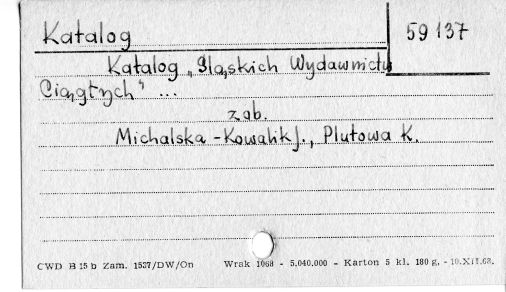 Katalog
59 137
Katalog „Śląskich Wydawnictw
Ciągłych" ...
zob.
Michalska-Kowalik J., Plutowa K.
CWD B 15 b Zam. 1537/DW/On Wrak 1068 - 5.040.000 - Karton 5 kl. 180 g. - 10.XII.68.